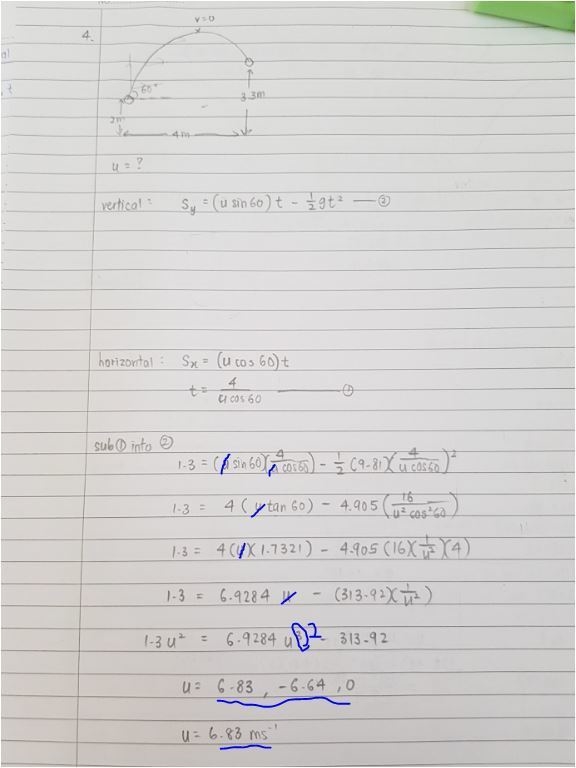 4.
v=0
60°
2m
3.3m
4m
u = ?
vertical : Sy = (u sin 60) t - 1/2 gt² — ②
horizontal : Sx = (u cos 60) t
t = 4/(u cos 60) — ①
sub ① into ②
1.3 = (u sin 60)(4/(u cos 60)) - 1/2 (9.81)(4/(u cos 60))²
1.3 = 4 (u tan 60) - 4.905 (16/(u² cos² 60))
1.3 = 4(u)(1.7321) - 4.905 (16)(1/u²)(4)
1.3 = 6.9284 u - (313.92)(1/u²)
1.3 u² = 6.9284 u³ 2 - 313.92
u = 6.83 , -6.64 , 0
u = 6.83 ms⁻¹